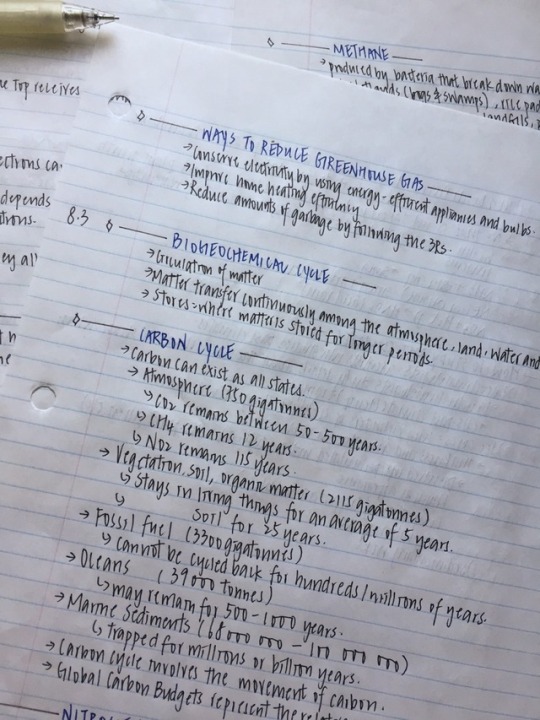 METHANE
→ produced by bacteria that break down wa
(bogs & swamps), rice pad
landfills,
he Top receives
ectrons ca
depends
trons.
ey all
WAYS TO REDUCE GREENHOUSE GAS
→ Conserve electricity by using energy-efficient appliances and bulbs.
→ Improve home heating efficiency
→ Reduce amounts of garbage by following the 3Rs.
8.3
BIOGEOCHEMICAL CYCLE
→ Circulation of matter
→ Matter transfer continuously among the atmosphere, land, water and
→ Stores = where matter is stored for longer periods.
CARBON CYCLE
→ Carbon can exist as all states.
→ Atmosphere (750 gigatonnes)
↳ CO2 remains between 50-500 years.
↳ CH4 remains 12 years.
↳ NO2 remains 115 years.
→ Vegetation, soil, organic matter (2115 gigatonnes)
↳ Stays in living things for an average of 5 years.
↳ soil for 25 years.
→ Fossil fuel (3300 gigatonnes)
↳ cannot be cycled back for hundreds/millions of years.
→ Oceans (39000 tonnes)
↳ may remain for 500-1000 years.
→ Marine Sediments (68 000 000 - 100 000 000)
↳ trapped for millions or billion years.
→ Carbon cycle involves the movement of carbon.
→ Global Carbon Budgets represent the